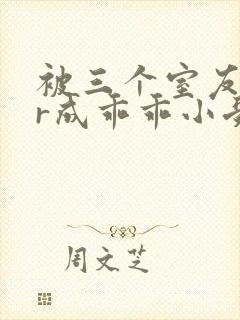 被三个室友
r成乖乖小
周文芝